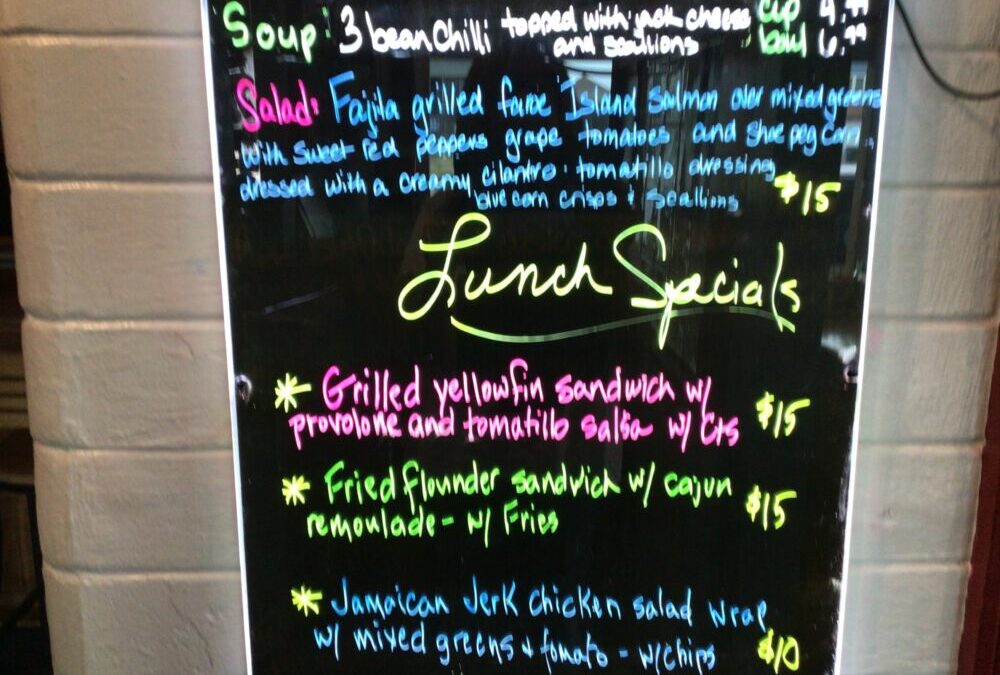 Soup: 3 bean chilli topped with jack cheese cup 4.99
and scallions bowl 6.99
Salad: Fajita grilled faroe Island Salmon over mixed greens
with sweet red peppers grape tomatoes and shoe peg corn
dressed with a creamy cilantro · tomatillo dressing
blue corn crisps & scallions $15
Lunch Specials
* Grilled yellowfin sandwich w/
provolone and tomatillo salsa w/ crs $15
* Fried flounder sandwich w/ cajun
remoulade - w/ Fries $15
* Jamaican Jerk chicken salad wrap
w/ mixed greens & tomato - w/chips $10